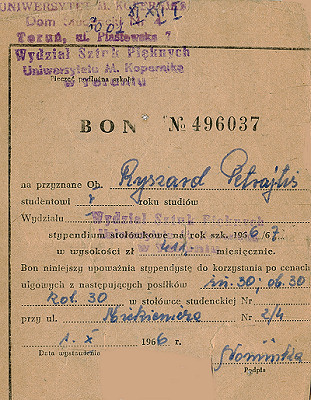 UNIWERSYTET M. KOPERNIKA
Dom Studencki Nr 4
Toruń, ul. Piastewska 7
Wydział Sztuk Pięknych
Uniwersytetu M. Kopernika
w Toruniu
Pieczęć podłużna szkoły
BON № 496037
na przyznane Ob. Ryszard Petrajtis
studentowi I roku studiów
Wydziału Wydział Sztuk Pięknych
stypendium stołówkowe na rok szk. 1966/67
w wysokości zł 411 miesięcznie.
Bon niniejszy upoważnia stypendystę do korzystania po cenach
ulgowych z następujących posiłków śn. 30; ob. 30
kol. 30 w stołówce studenckiej Nr
przy ul. Mickiewicza Nr 2/4
1. X 1966 r.
Data wystawienia
Podpis